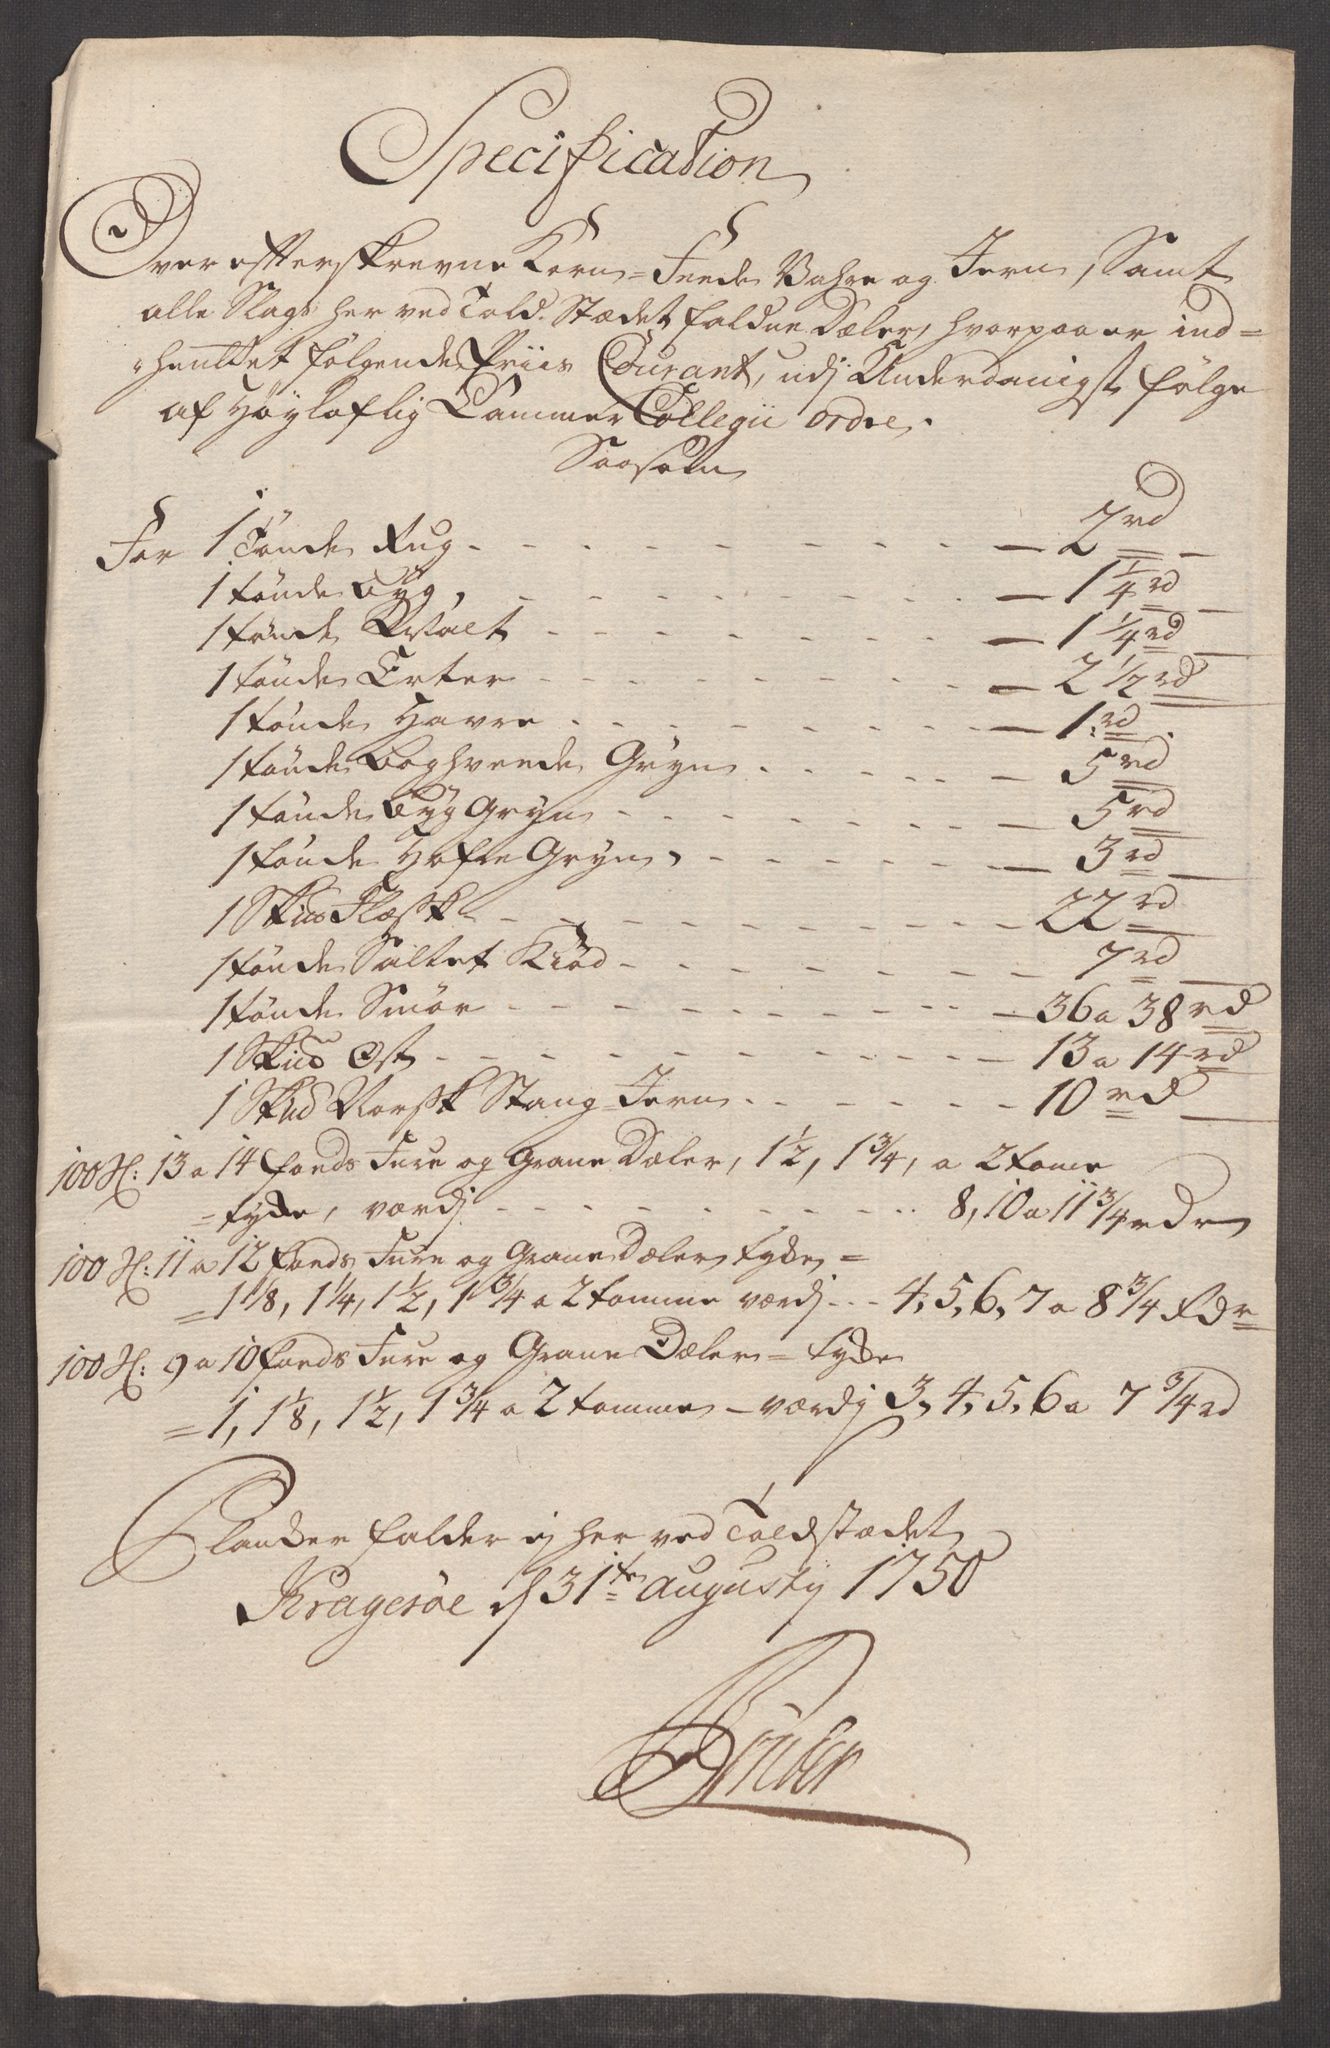 Specification
Over efterskrevne Korn- Feede Vahre og Jern, Samt
alle Slags her ved Told-Stædet faldne Dæler, hvorpaa er ind-
hentet følgende Priis Courant, udj Underdanigst følge
af Høyloflig Cammer Collegii ordre.
Saasom
For 1 Tønde Rug - - - - - - - - - 2 rd
1 tønde Byg, - - - - - - - - - 1 1/4 rd
1 tønde Malt - - - - - - - - 1 1/4 rd
1 tønde Erter - - - - - - - - 2 1/2 rd
1 tønde Havre - - - - - - - - 1 rd
1 tønde Boghveede Gryn - - - - - - 5 rd
1 tønde Byg Gryn - - - - - - - - 5 rd
1 tønde Hafre Gryn, - - - - - - - 3 rd
1 Skud Flæsk - - - - - - - - - 22 rd
1 tønde Saltet Kiød - - - - - - - - 7 rd
1 tønde Smør - - - - - - - - 36 a 38 rd
1 Skud Ost - - - - - - - - - 13 a 14 rd
1 Skud Norsk Stang-Jern - - - - - - 10 rd
100 st: 13 a 14 foeds Fure og Grane Dæler, 1 1/2, 1 3/4, a 2 tome
= tyke, værdj - - - - - - - - - - 8, 10 a 11 3/4 rdr
100 st: 11 a 12 foeds Fure og Grane Dæler tyke =
= 1 1/8, 1 1/4, 1 1/2, 1 3/4 a 2 tomme værdj - - - 4, 5, 6, 7 a 8 3/4 rdr
100 st: 9 a 10 foeds Fure og Grane Dæler = tyke
= 1, 1 1/8, 1 1/2, 1 3/4 a 2 tomme - værdj 3, 4, 5, 6 a 7 3/4 rd
Planker falder ej her ved Toldstædet
Kragerøe d 31te Augustij 1750